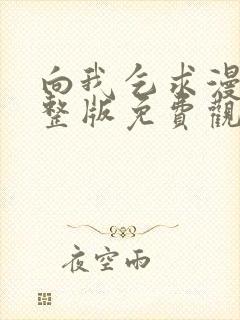 向我乞求漫
整版免費觀
夜空雨